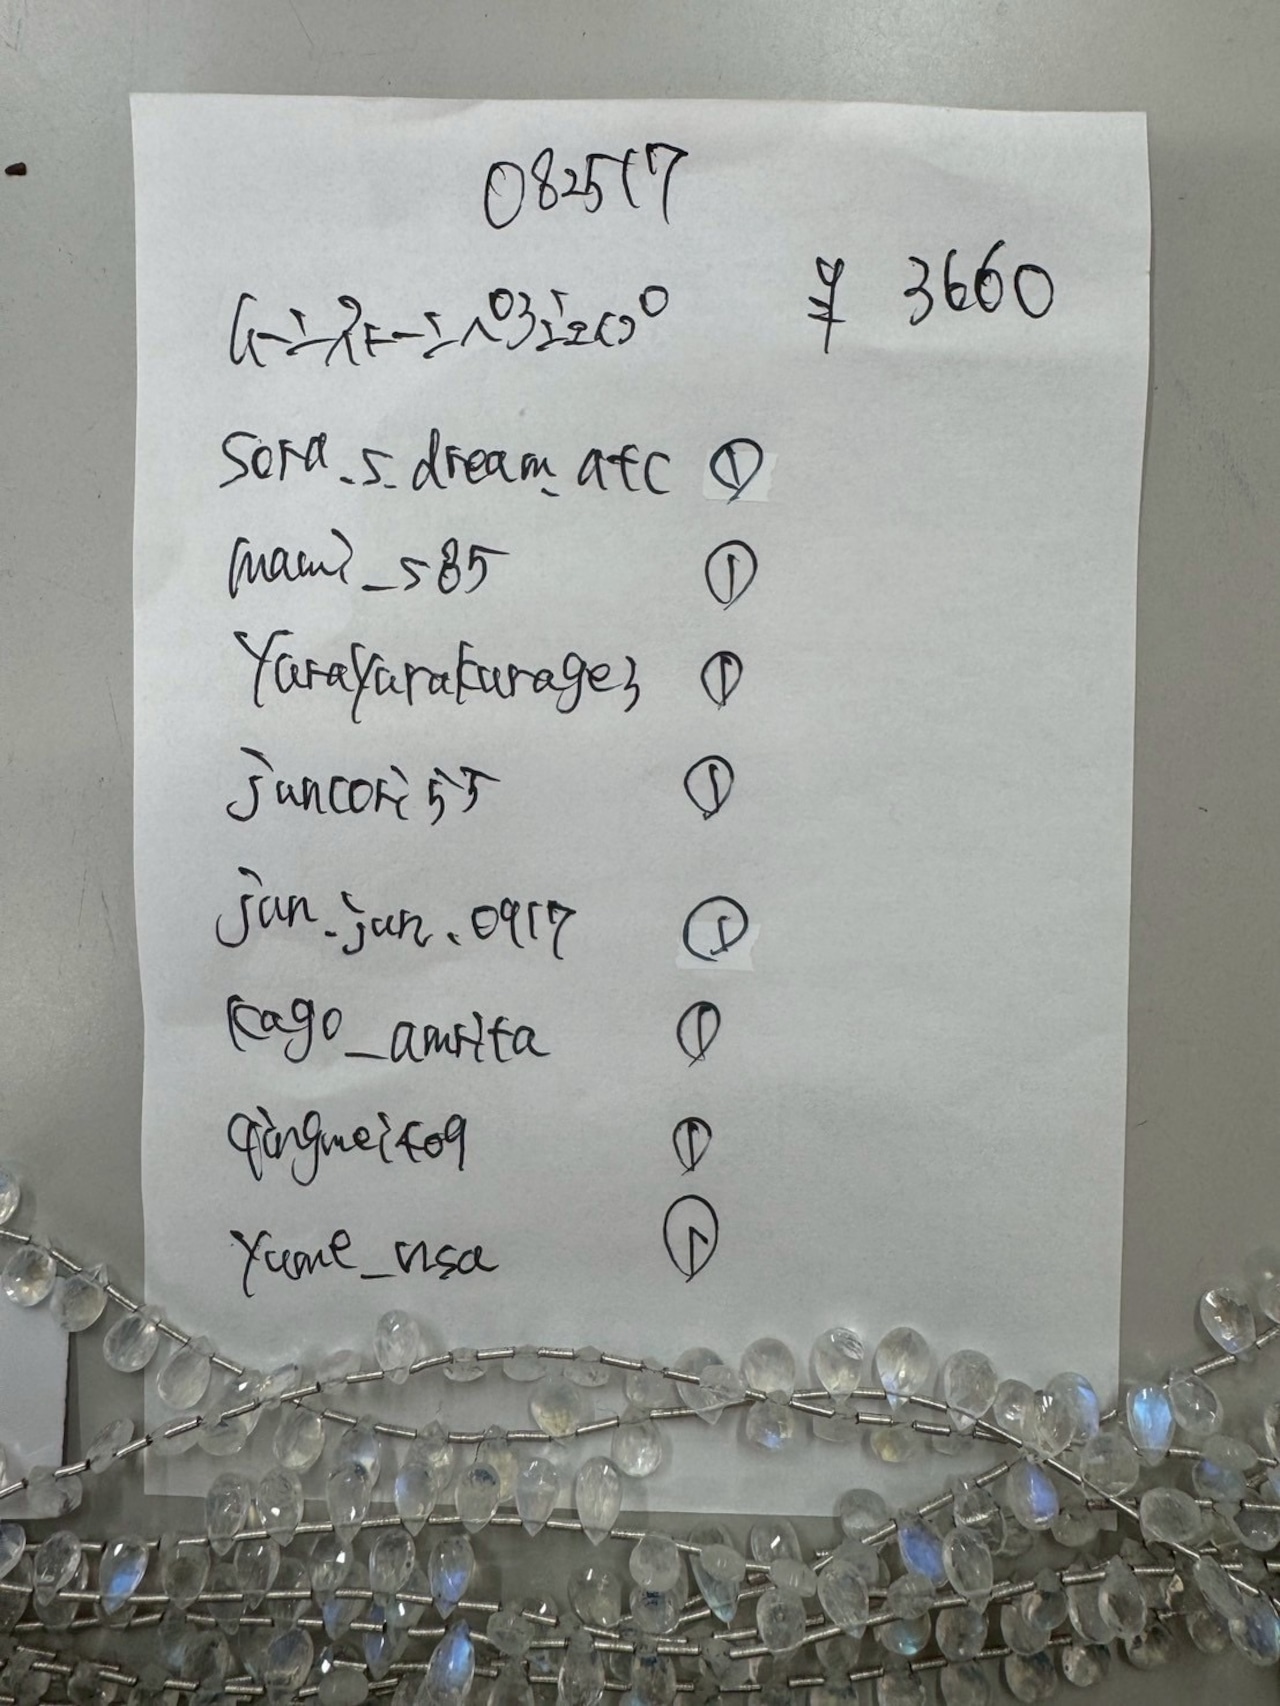 082517
¥ 3660
Sora_s_dream_atc ①
mami_s85 ①
YuraYurakurage3 ①
juncori55 ①
jun.jun.0917 ①
kago_amrita ①
qingmei409 ①
Yume_nsa ①